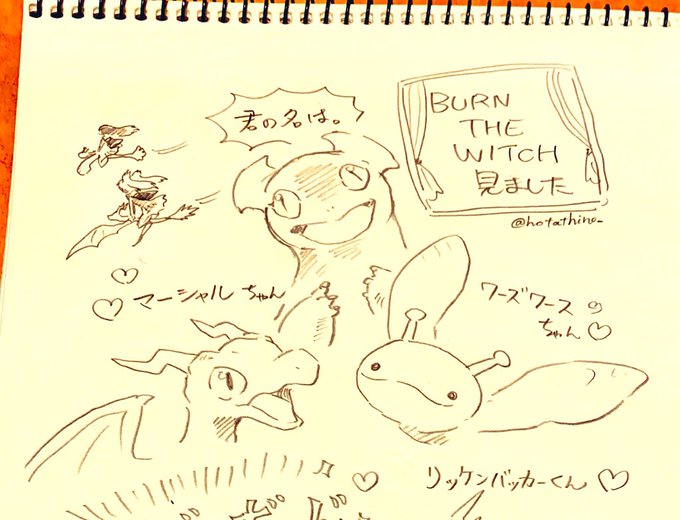 君の名は。
BURN
THE
WITCH
見ました
@hotathino_
マーシャルちゃん
ワーズワースの
ちゃん
リッケンバッカーくん